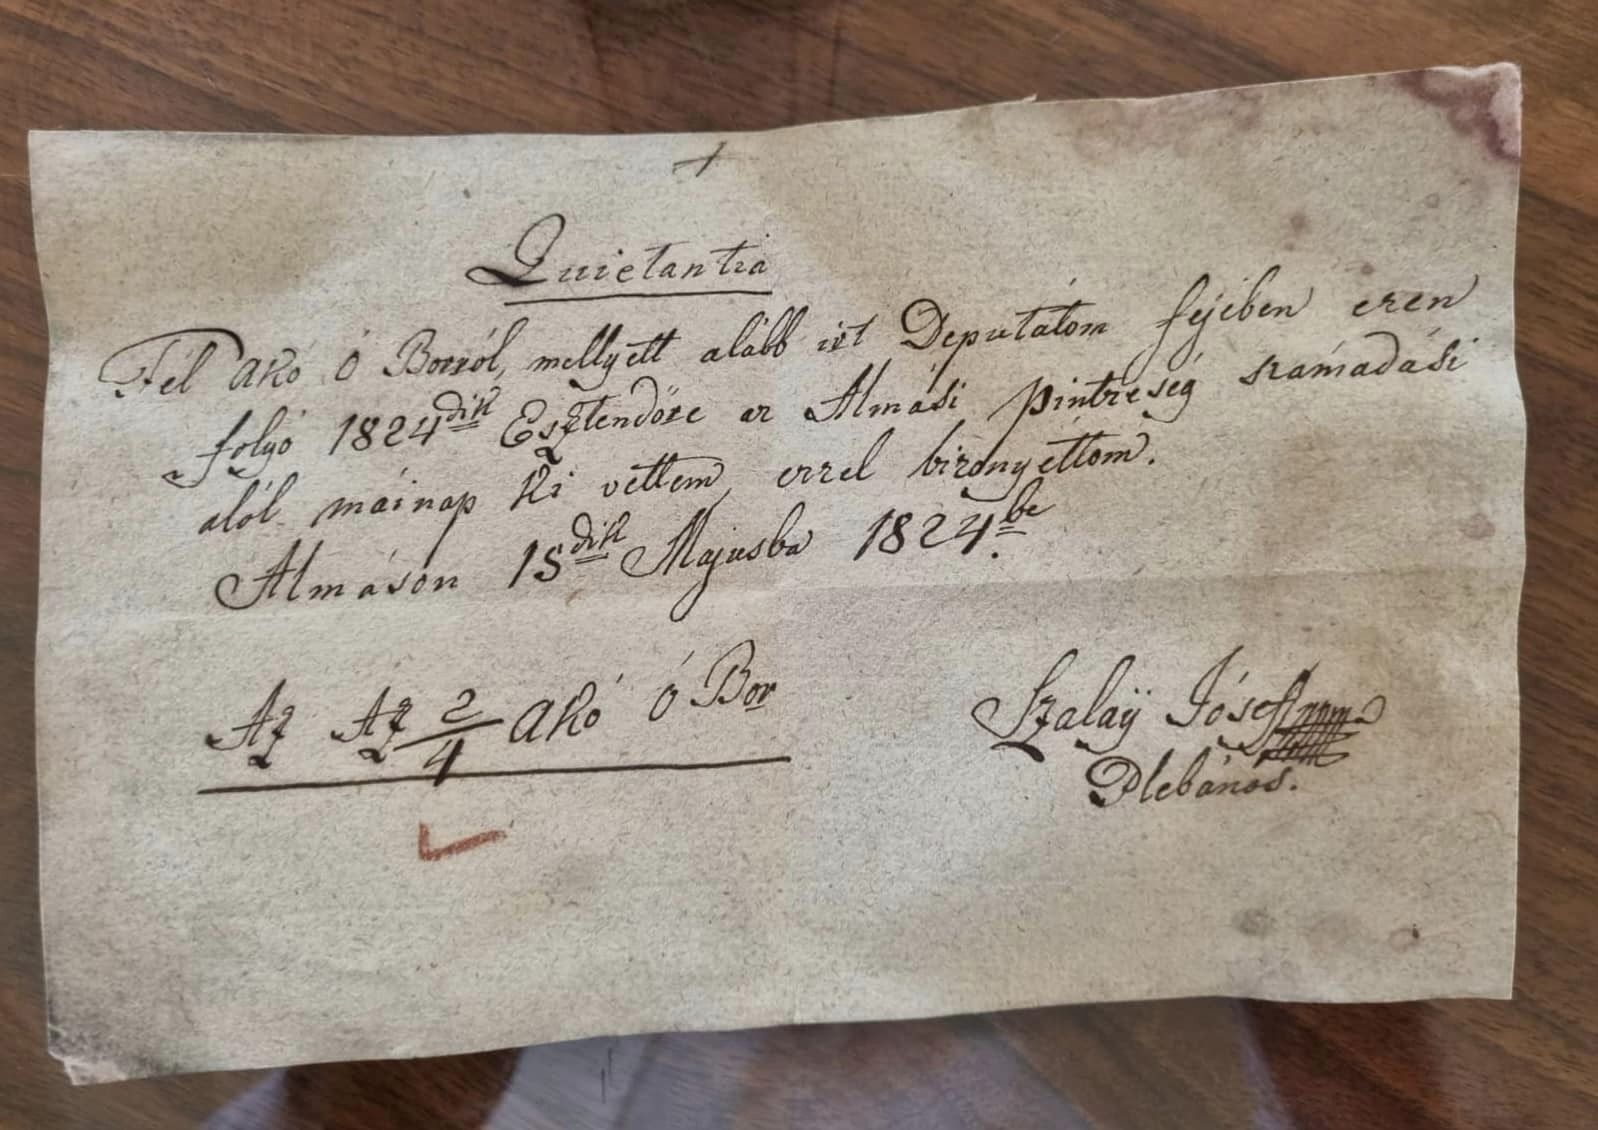 Quietantia
Fél Akó ó Borról, mellyett alább irt Deputátom fejében ezen
folyó 1824dik Esztendőre az Almási Pintzeség számadási
alól mái nap Ki vettem, ezzel bizonyéttom.
Almáson 15dik Majusba 1824be.
Az Az 2/4 Akó ó Bor
Szalaÿ Jósef
Plebános.